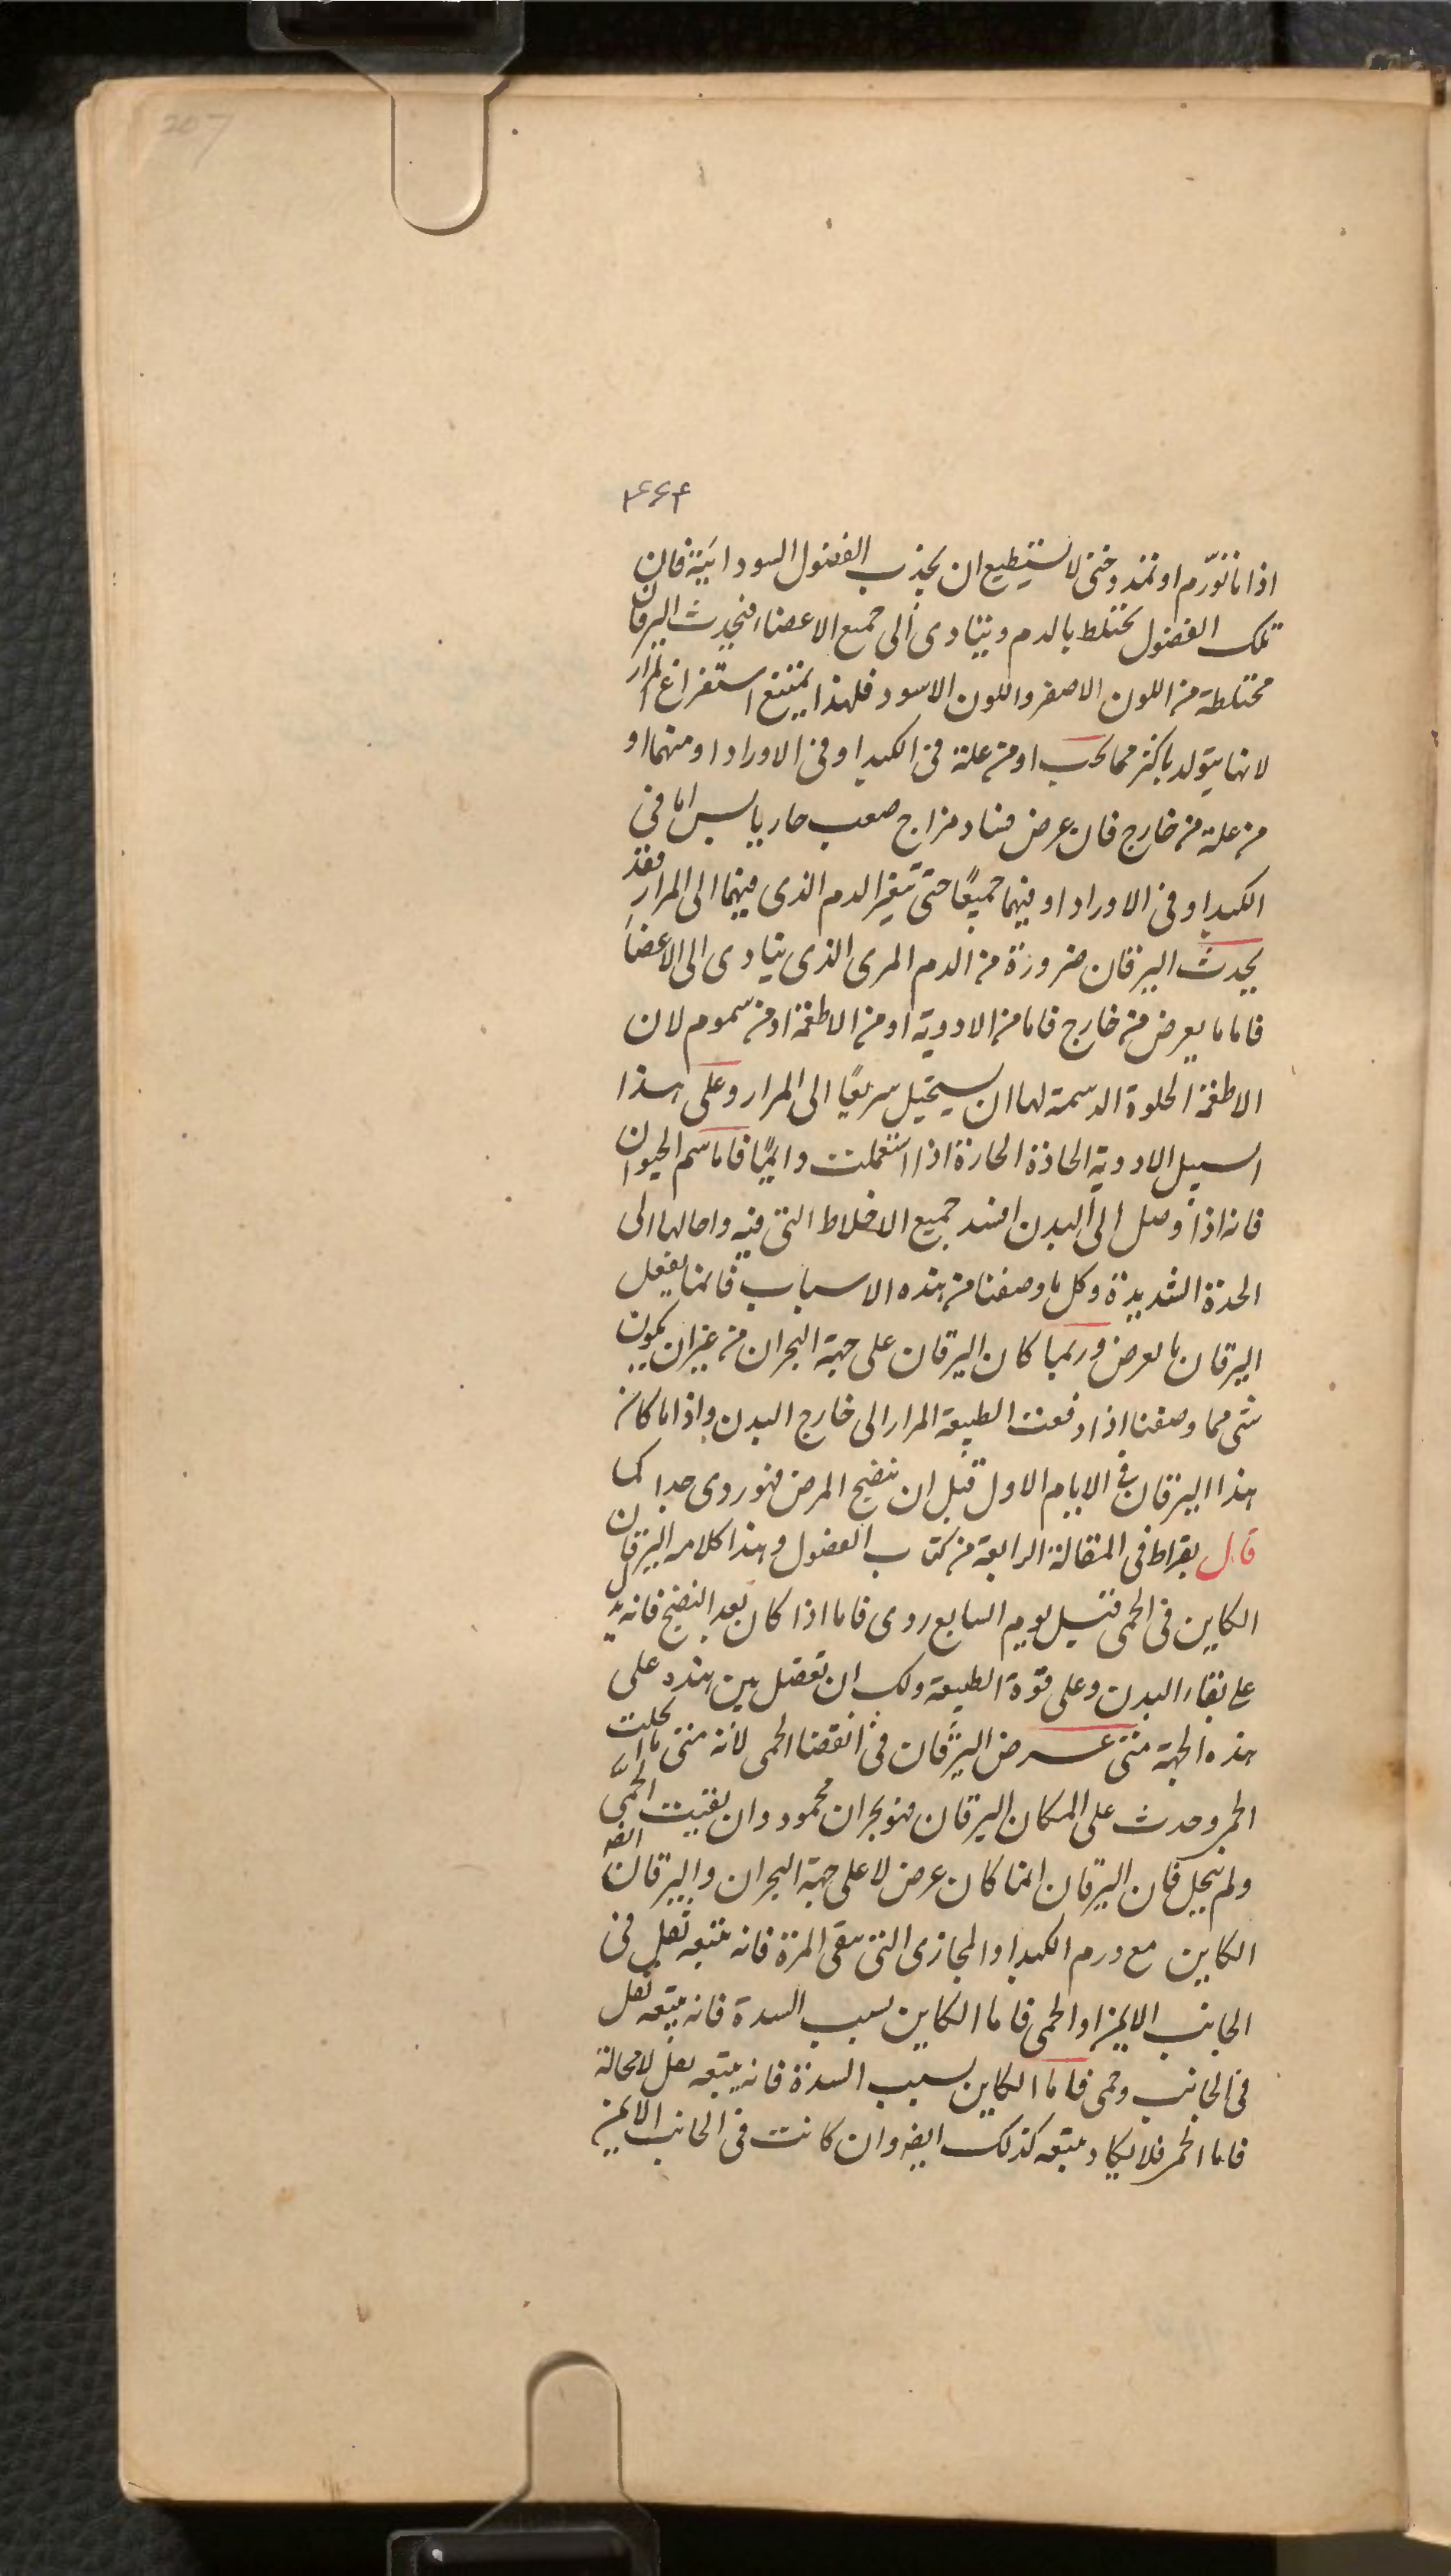 207
۴۶۴
اذا ما تورّم او تمدد حتى لا يستطيع ان يجذب الفضول السوداىية فان
تلك الفضول تختلط بالدم ويتادى الى جميع الاعضاء فيحدث اليرقان
مختلطة من اللون الاصفر واللون الاسود فلهذا يمتنع استفراغ المرار
لانها يتولد باكثر مما يجب او من علة فى الكبد او فى الاوراد او منهما او
من علة من خارج فان عرض فساد مزاج صعب حار يابس اما فى
الكبد او فى الاوراد او فيهما جميعًا حتى تغير الدم الذى فيهما الى المرار فقد
يحدث اليرقان ضرورة من الدم المرى الذى يتادى الى الاعضاء
فاما ما يعرض من خارج فاما من الادوية او من الاطعمة او من سموم لان
الاطعمة الحلوة الدسمة لها ان يستحيل سريعًا الى المرار وعلى هذا
السبيل الادوية الحادة الحارة اذا استعملت دايمًا فاما سم الحيوان
فانه اذا وصل الى البدن افسد جميع الاخلاط التى فيه واحالها الى
الحدة الشديدة وكل ما وصفنا من هذه الاسباب فانما يفعل
اليرقان بالعرض وربما كان اليرقان على جهة البحران من غير ان يكون
شى مما وصفنا اذا دفعت الطبيعة المرار الى خارج البدن واذا ما كان
هذا اليرقان فى الايام الاول قبل ان ينضج المرض فهو ردى جدا كما
قال بقراط فى المقالة الرابعة من كتاب الفضول وهذا كلامه اليرقان
الكاين فى الحمى قبل يوم السابع ردى فاما اذا كان بعد النضج فانه يدل
على نقاء البدن وعلى قوة الطبيعة ولك ان تفضل بين هذه على
هذه الجهة متى عرض اليرقان فى انقضا الحمى لانه متى ما انحلت
الحمى وحدث على المكان اليرقان فهو بحران محمود وان بقيت الحمى
ولم ينحل فان اليرقان انما كان عرض لا على جهة البحران واليرقان ايضه
الكاين مع ورم الكبد او المجازى التى تنقى المرة فانه يتبعه ثقل فى
الجانب الايمن او الحمى فاما الكاين بسبب السدة فانه يتبعه ثقل
فى الجانب وحمى فاما الكاين بسبب السدة فانه يتبعه ثقل لا محالة
فاما الحمر فلا يكاد يتبعه كذلك ايضه وان كانت فى الجانب الايمن